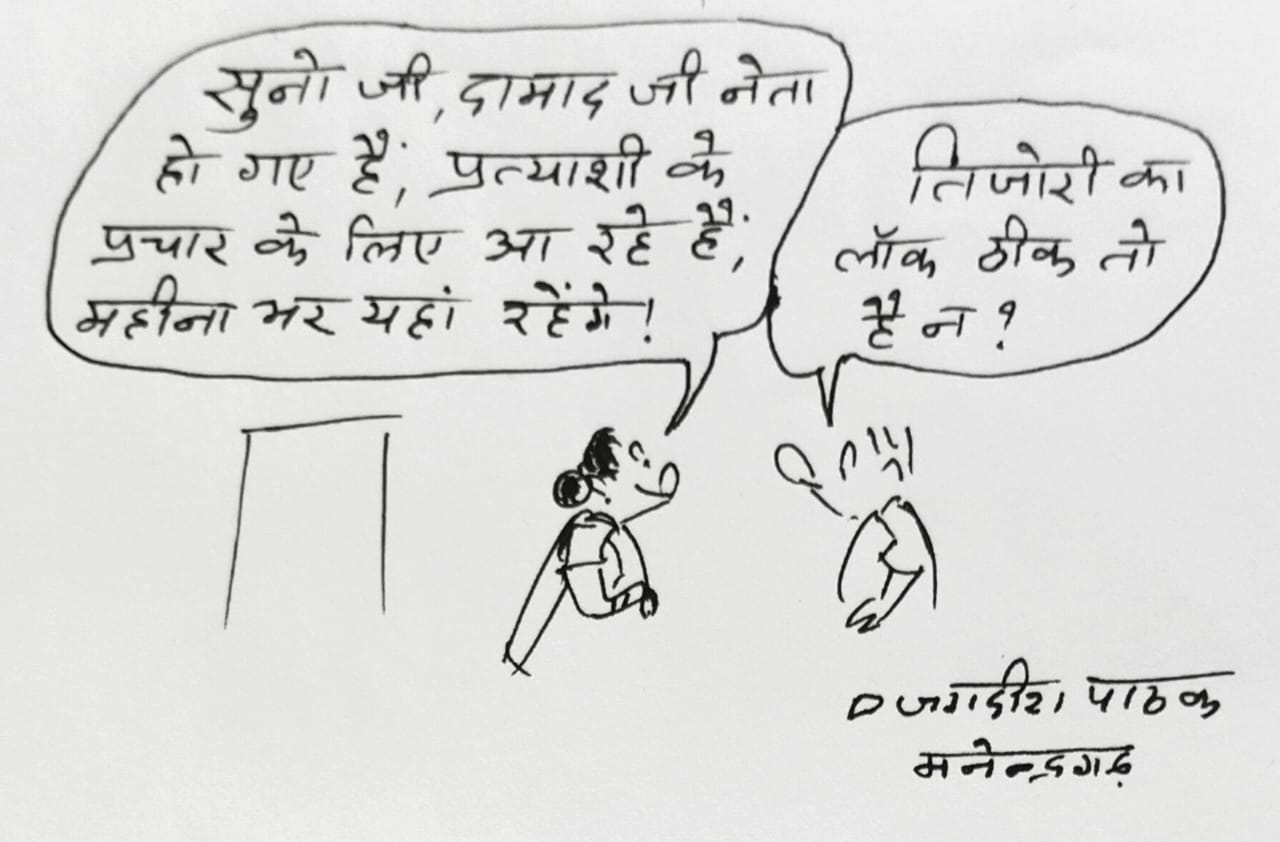 सुनो जी, दामाद जी नेता
हो गए हैं, प्रत्याशी के
प्रचार के लिए आ रहे हैं,
महीना भर यहां रहेंगे!
तिजोरी का
लॉक ठीक तो
है न?
जगदीश पाठक
मनेन्द्रगढ़